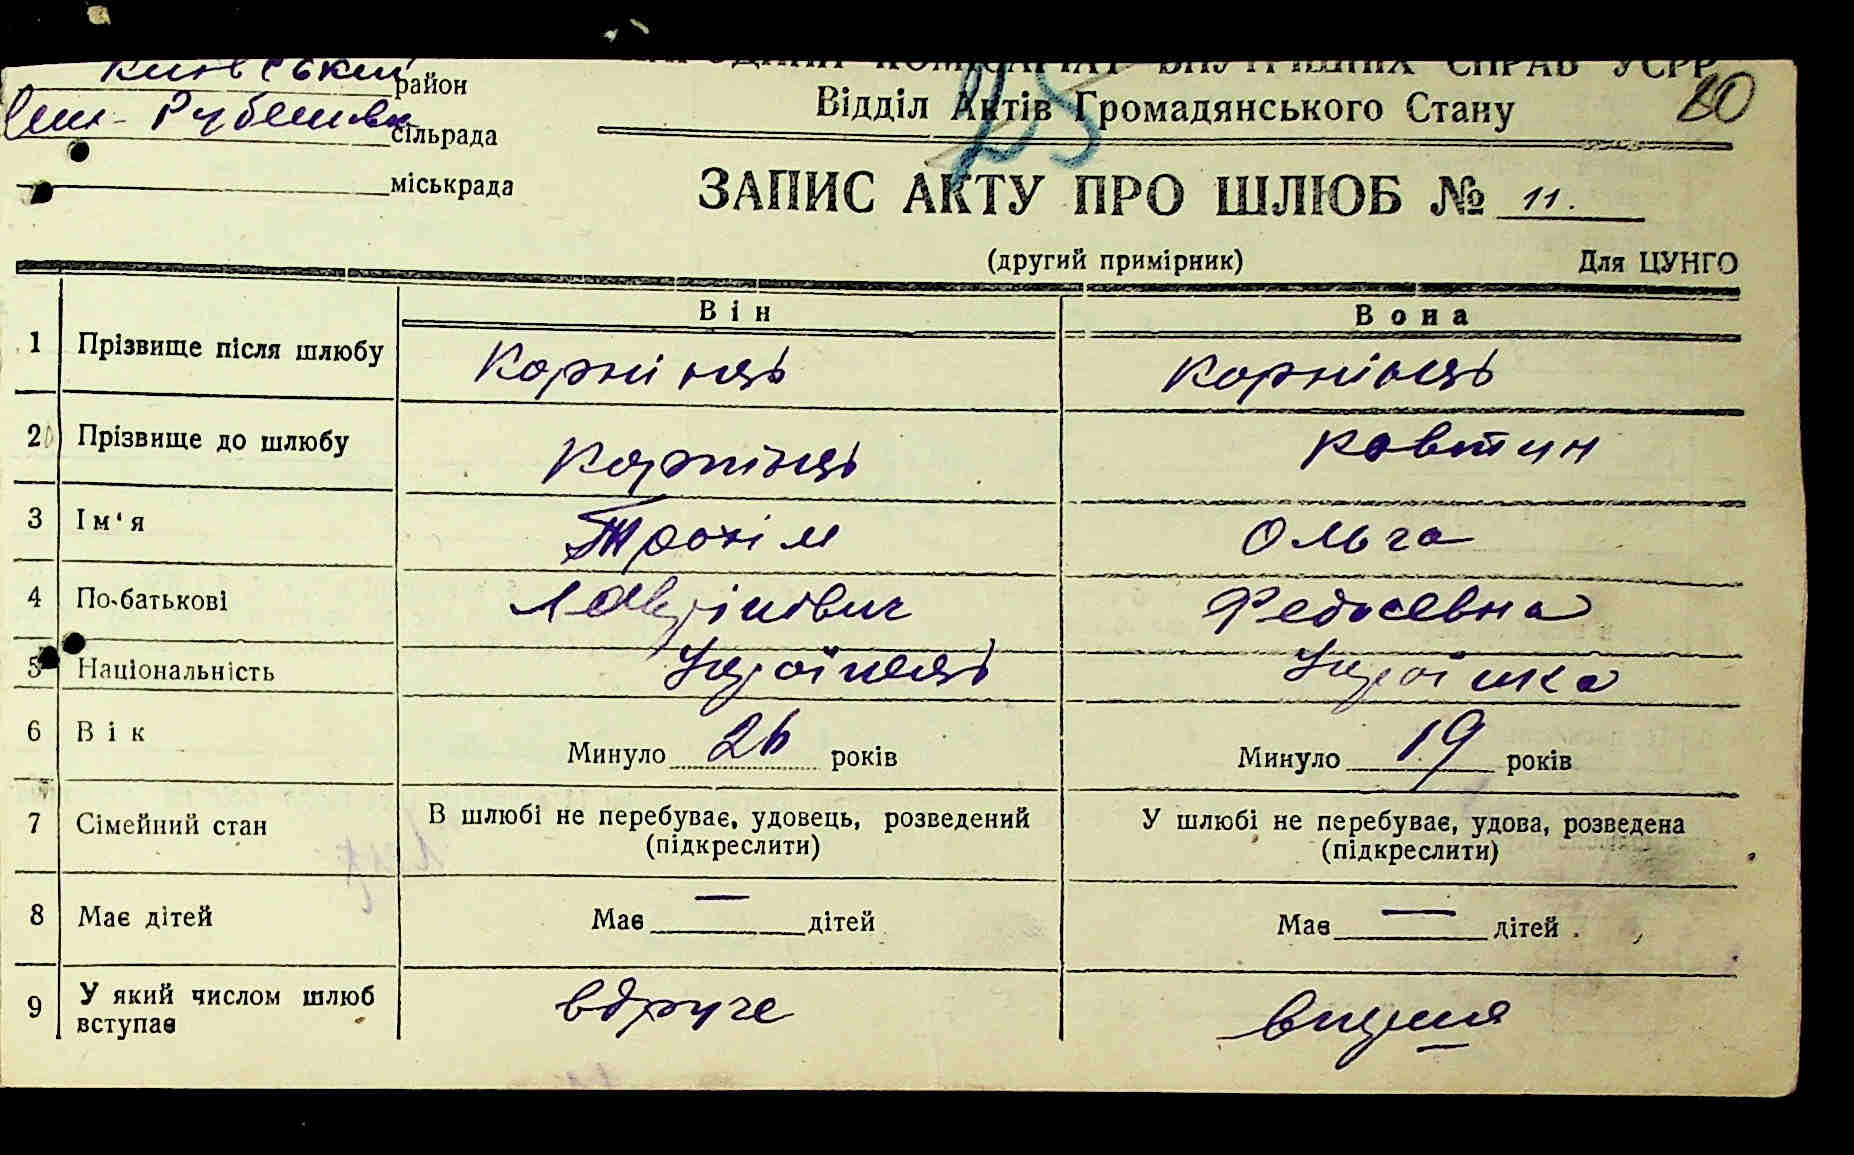 Київський район
НАРОДНИЙ КОМІСАРІАТ ВНУТРІШНІХ СПРАВ УСРР
25
80
Відділ Актів Громадянського Стану
сільрада
міськрада
ЗАПИС АКТУ ПРО ШЛЮБ № 11.
(другий примірник) Для ЦУНГО
Він Вона
1 Прізвище після шлюбу Корнінць Корнінць
2 Прізвище до шлюбу Корнінць Ковтун
3 Ім'я Трохім Ольга
4 По-батькові Лаврінович Федосєвна
5 Національність Українець Українка
6 Вік Минуло 26 років Минуло 19 років
7 Сімейний стан В шлюбі не перебуває, удовець, розведений У шлюбі не перебуває, удова, розведена
(підкреслити) (підкреслити)
8 Має дітей Має — дітей Має — дітей
9 У який числом шлюб вдруге вперше
вступає